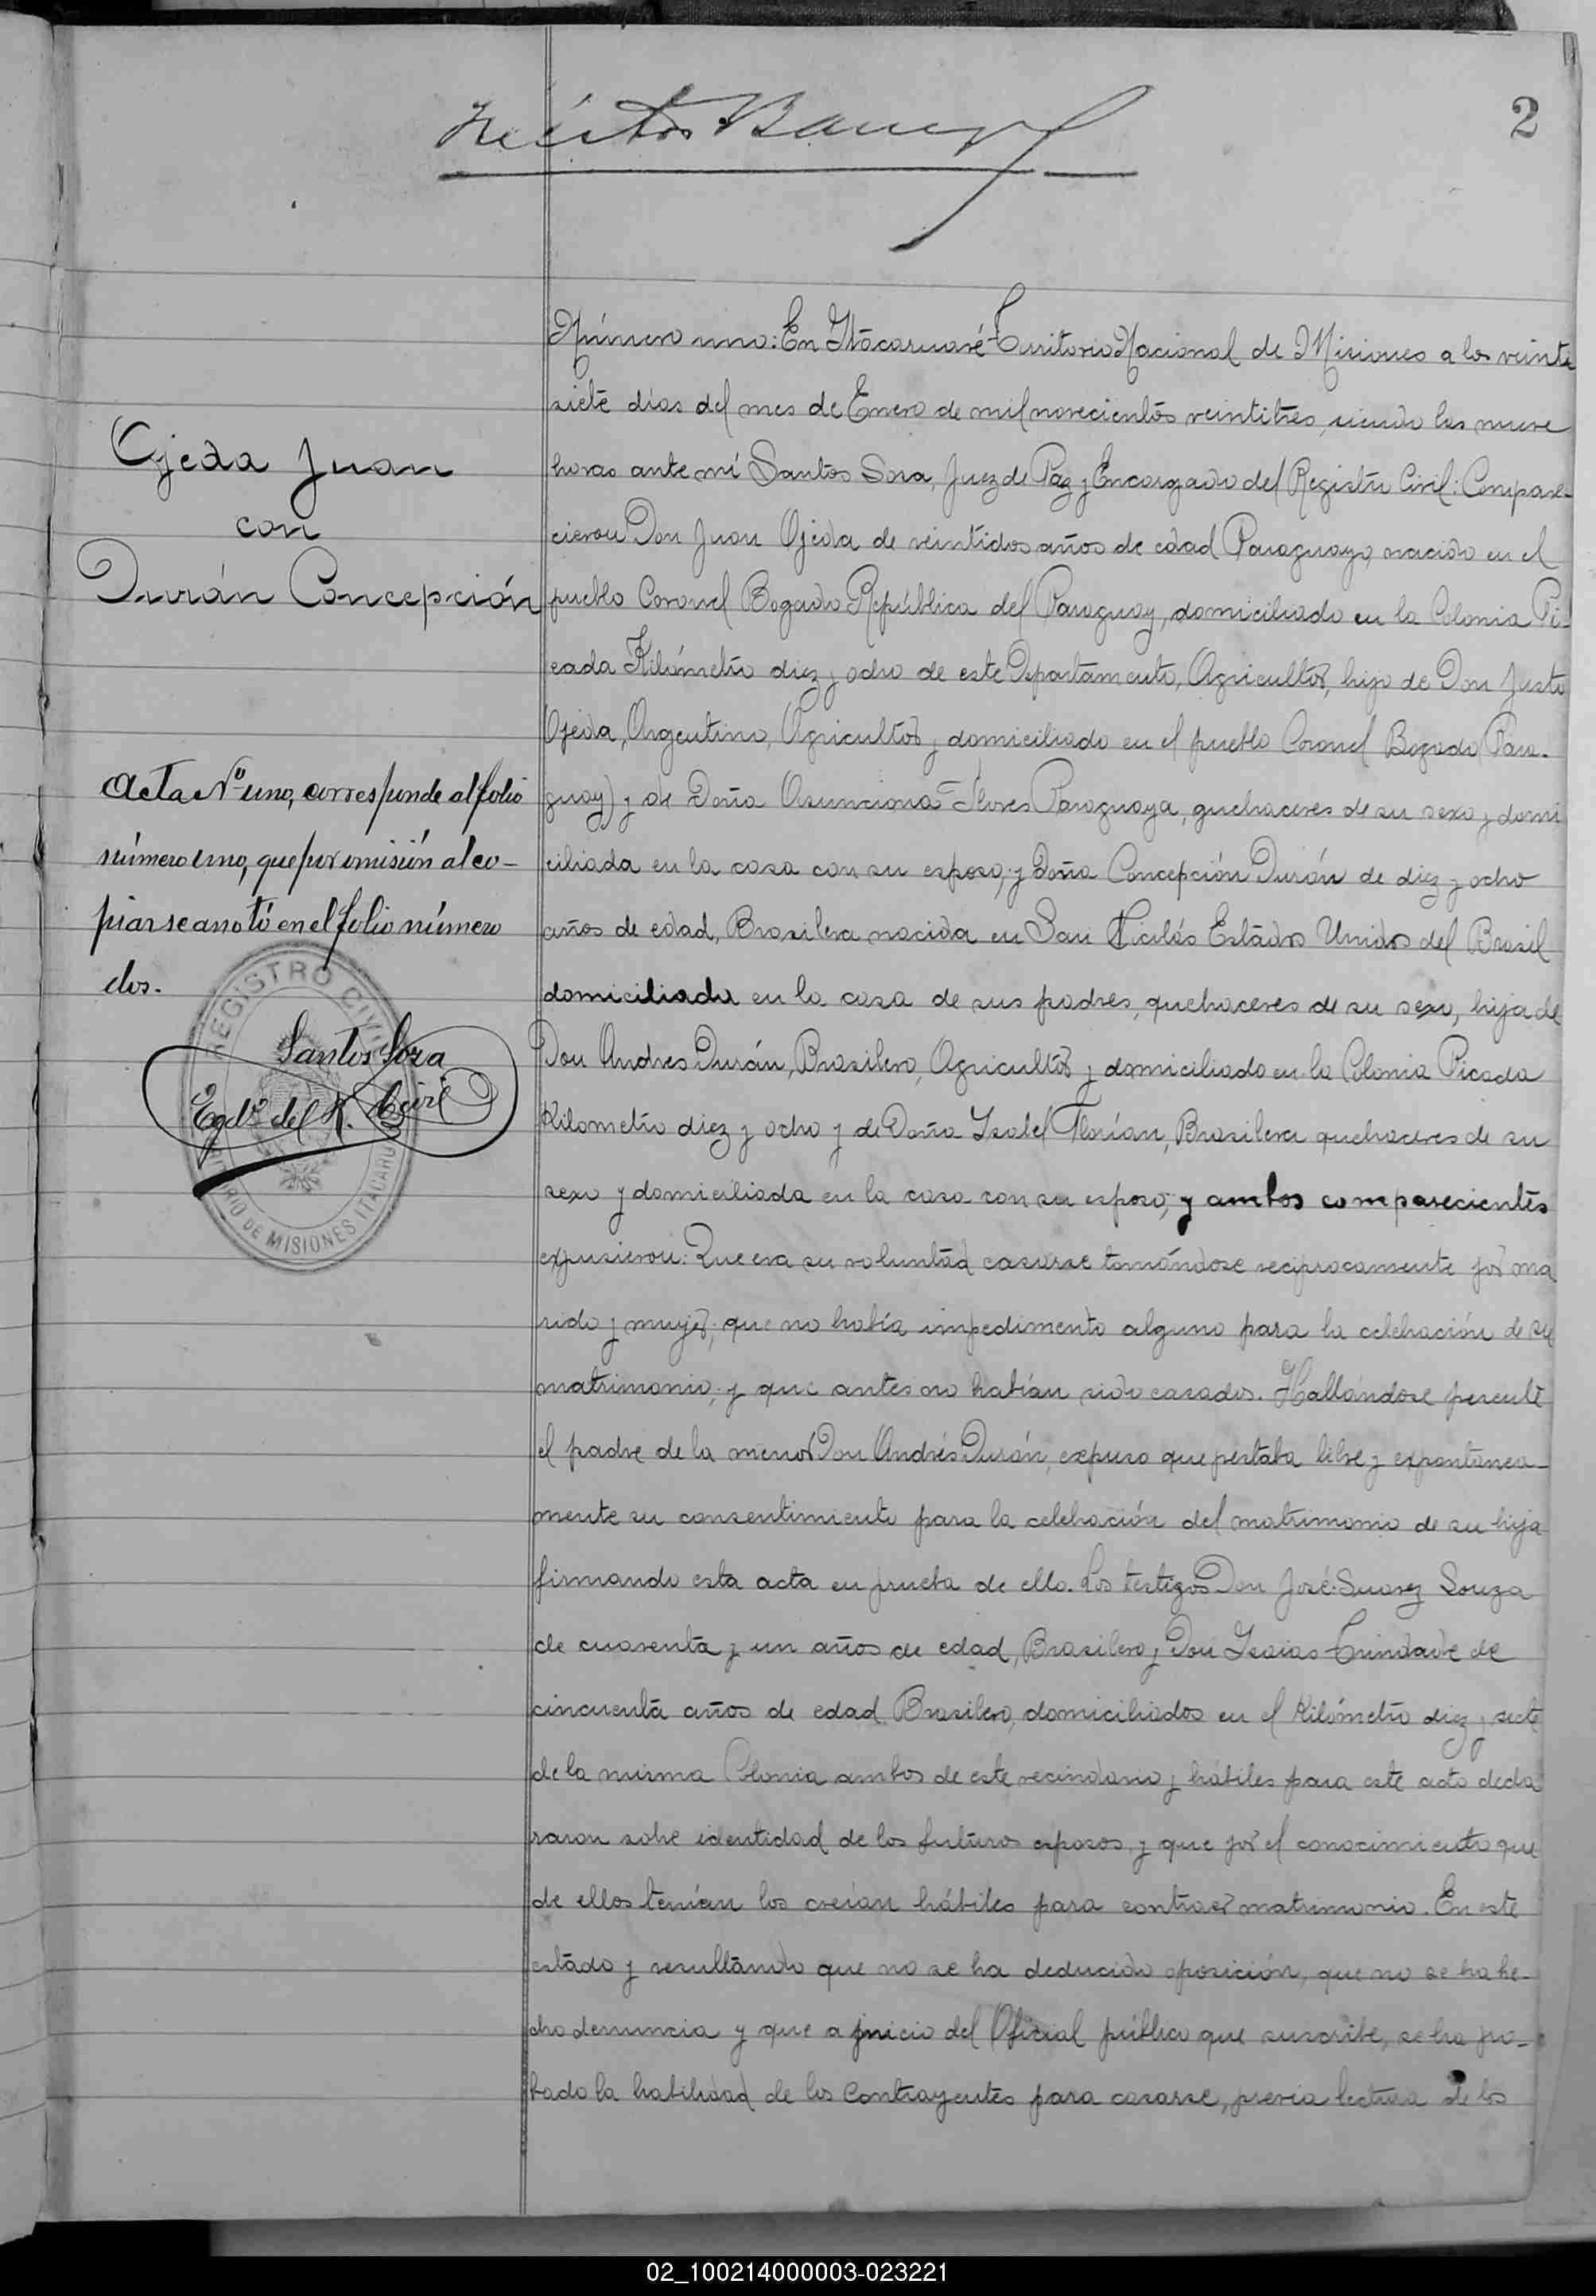 2
Ojeda Juan
con
Durán Concepción
Acta Nº uno, corresponde al folio
número uno, que por omisión al co-
piarse anotó en el folio número
dos.
REGISTRO CIVIL
Santos Sosa
Egdº del R. Civil
MISIONES ITACARUARE
Número uno: En Itácaruaré Territorio Nacional de Misiones a los veinti
siete días del mes de Enero de mil novecientos veintitres, siendo las nueve
horas ante mí Santos Sosa, Juez de Paz y Encargado del Registro Civil: Compare-
cieron Don Juan Ojeda de veintidos años de edad Paraguayo, nacido en el
pueblo Coronel Bogado República del Paraguay, domiciliado en la Colonia Pi-
cada Kilómetro diez y ocho de este Departamento, Agricultor, hijo de Don Justo
Ojeda, Argentino, Agricultor y domiciliado en el pueblo Coronel Bogado (Para-
guay) y de Doña Asunciona Flores Paraguaya, quehaceres de su sexo y domi
ciliada en la casa con su esposo; y Doña Concepción Durán de diez y ocho
años de edad, Brasilera nacida en San Nicolás Estados Unidos del Brasil
domiciliada en la casa de sus padres, quehaceres de su sexo, hija de
Don Andres Durán, Brasilero, Agricultor y domiciliado en la Colonia Picada
Kilometro diez y ocho y de Doña Isabel Florían, Brasilera quehaceres de su
sexo y domiciliada en la casa con su esposo; y ambos comparecientes
expusieron: Que era su voluntad casarse tomándose reciprocamente por ma
rido y mujer; que no había impedimento alguno para la celebración de su
matrimonio; y que antes no habían sido casados. Hallándose presente
el padre de la menor Don Andrés Durán, expuso que prestaba libre y expontanea-
mente su consentimiento para la celebración del matrimonio de su hija
firmando esta acta en prueba de ello. Los testigos Don José Suarez Souza
de cuarenta y un años de edad, Brasilero y Don Isaias Trindade de
cincuenta años de edad Brasilero, domiciliados en el Kilómetro diez y siete
de la misma Colonia ambos de este vecindario y hábiles para este acto decla
raron sobre identidad de los futuros esposos, y que por el conocimiento que
de ellos tenían los creían hábiles para contraer matrimonio. En este
estado y resultando que no se ha deducido oposición, que no se ha he-
cho denuncia y que a juicio del Oficial público que suscribe, se ha pro-
bado la habilidad de los Contrayentes para casarse, previa lectura de los
02_100214000003-023221